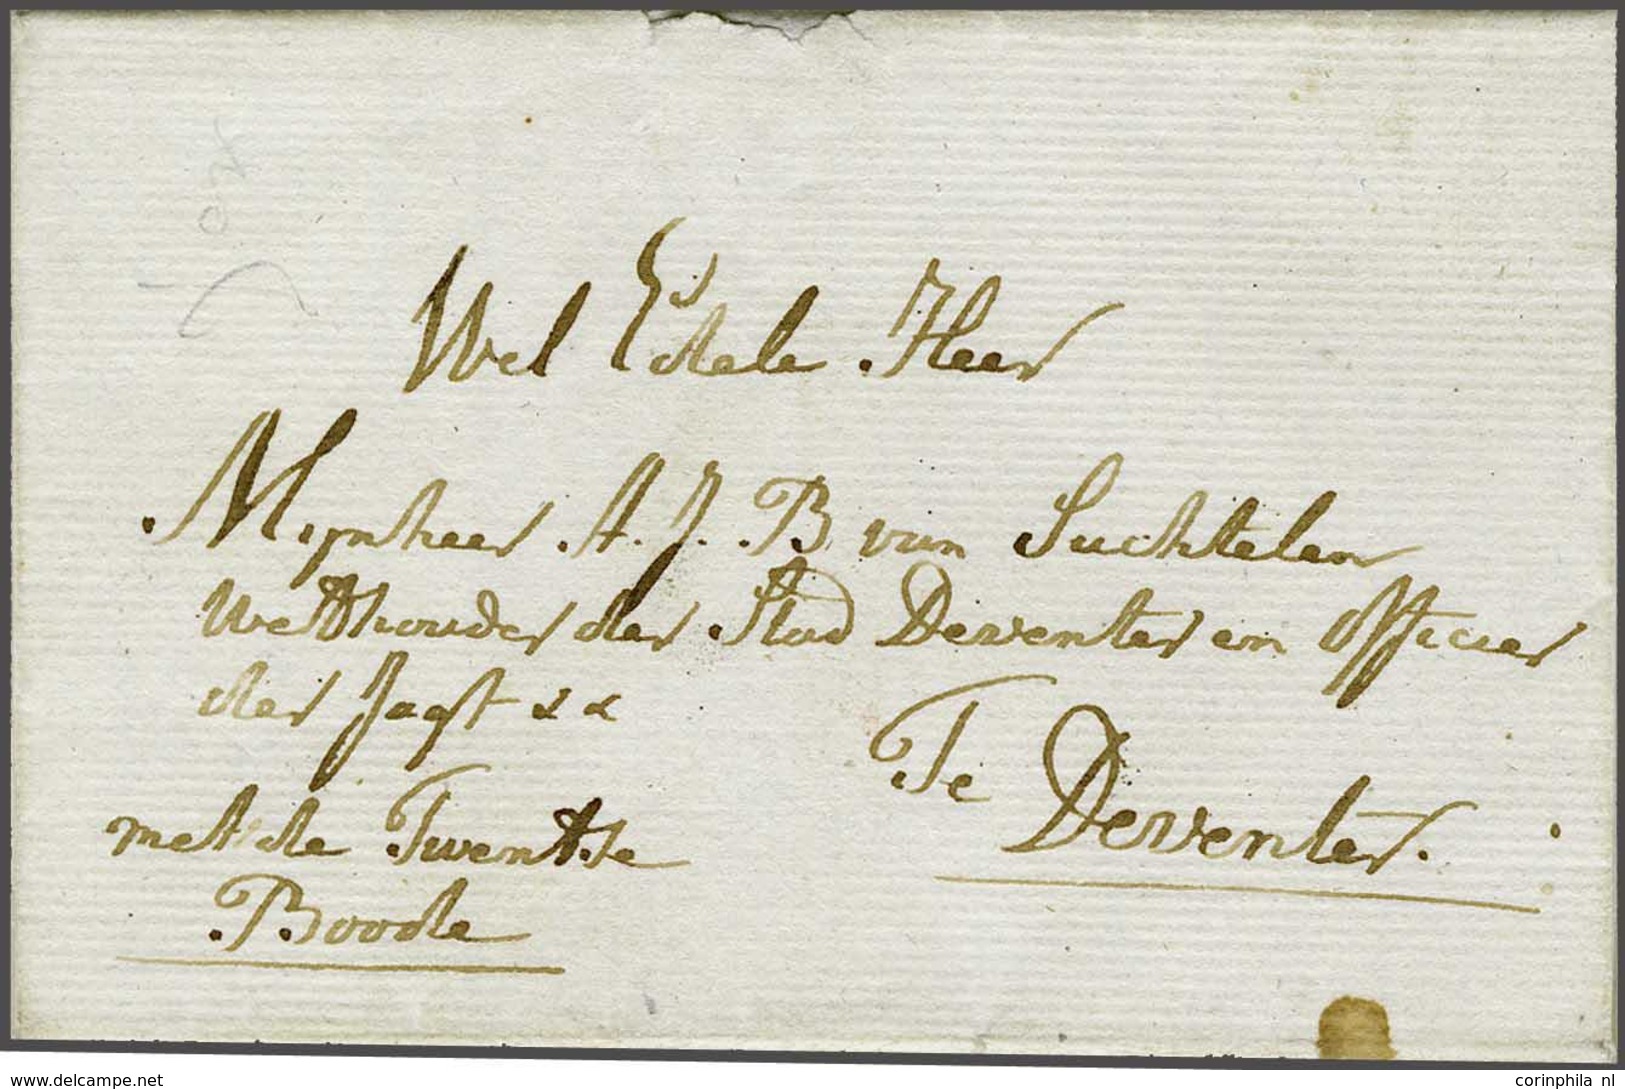 Wel Edele Heer
Mijnheer A. J. B van Suchtelen
Wethouder der Stad Deventer en Officier
der Jagt &&
Te
Deventer.
met de Twentse
Boode
www.delcampe.net
corinphila nl